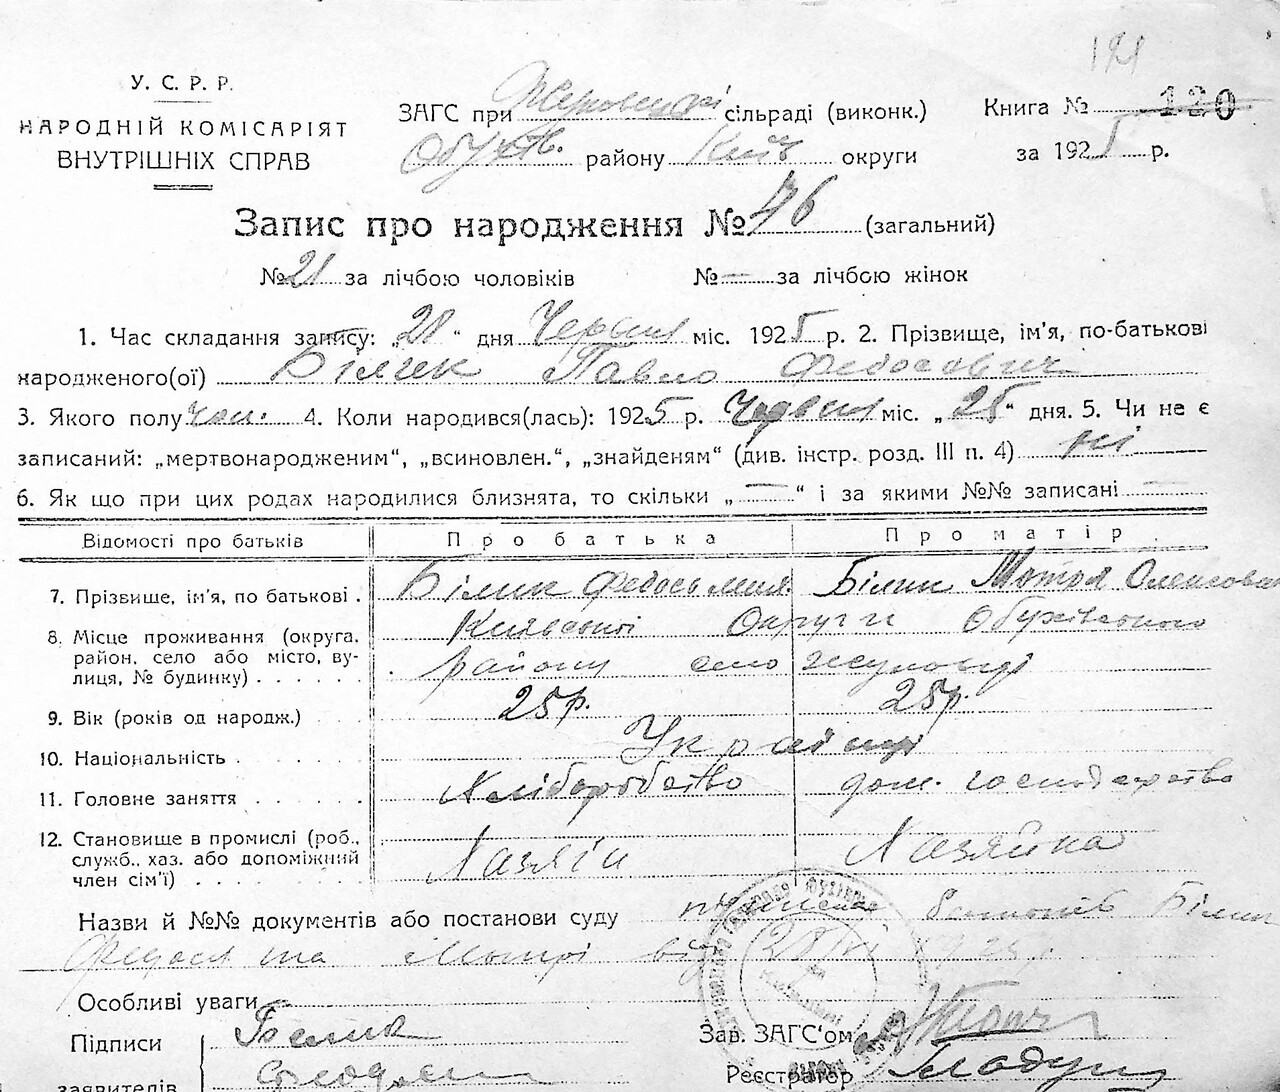 191
У. С. Р. Р.
НАРОДНІЙ КОМІСАРІЯТ
ВНУТРІШНІХ СПРАВ
ЗАГС при сільраді (виконк.)
Обухів. району Київ округи
Книга № 120
за 1925 р.
Запис про народження № 46 (загальний)
№ 21 за лічбою чоловіків № — за лічбою жінок
1. Час складання запису: „28“ дня Червня міс. 1925 р. 2. Прізвище, ім'я, по-батькові
народженого(ої) Павло Федосович
3. Якого полу чол. 4. Коли народився(лась): 1925 р. Червня міс. „25“ дня. 5. Чи не є
записаний: „мертвонародженим“, „всиновлен.“, „знайденям“ (див. інстр. розд. III п. 4) ні
6. Як що при цих родах народилися близнята, то скільки „—“ і за якими №№ записані —
Відомості про батьків Про батька Про матір.
7. Прізвище, ім'я, по батькові . Білик Федось Білик Мотря
8. Місце проживання (округа, район, село або місто, вулиця, № будинку) . . . . . . Київської Округи Обухівського
району село
9. Вік (років од народж.) . . . 25р. 25р.
10. Національність . . . . . . Українці
11. Головне заняття . . . . . . Хліборобство дом. господарство
12. Становище в промислі (роб., служб., хаз. або допоміжний член сім'ї) . . . . . . Хазяін Хазяйка
Назви й №№ документів або постанови суду Білик
та від 28 1925р.
Особливі уваги —
Підписи Білик
заявителів
Зав. ЗАГС'ом
Реєстратор